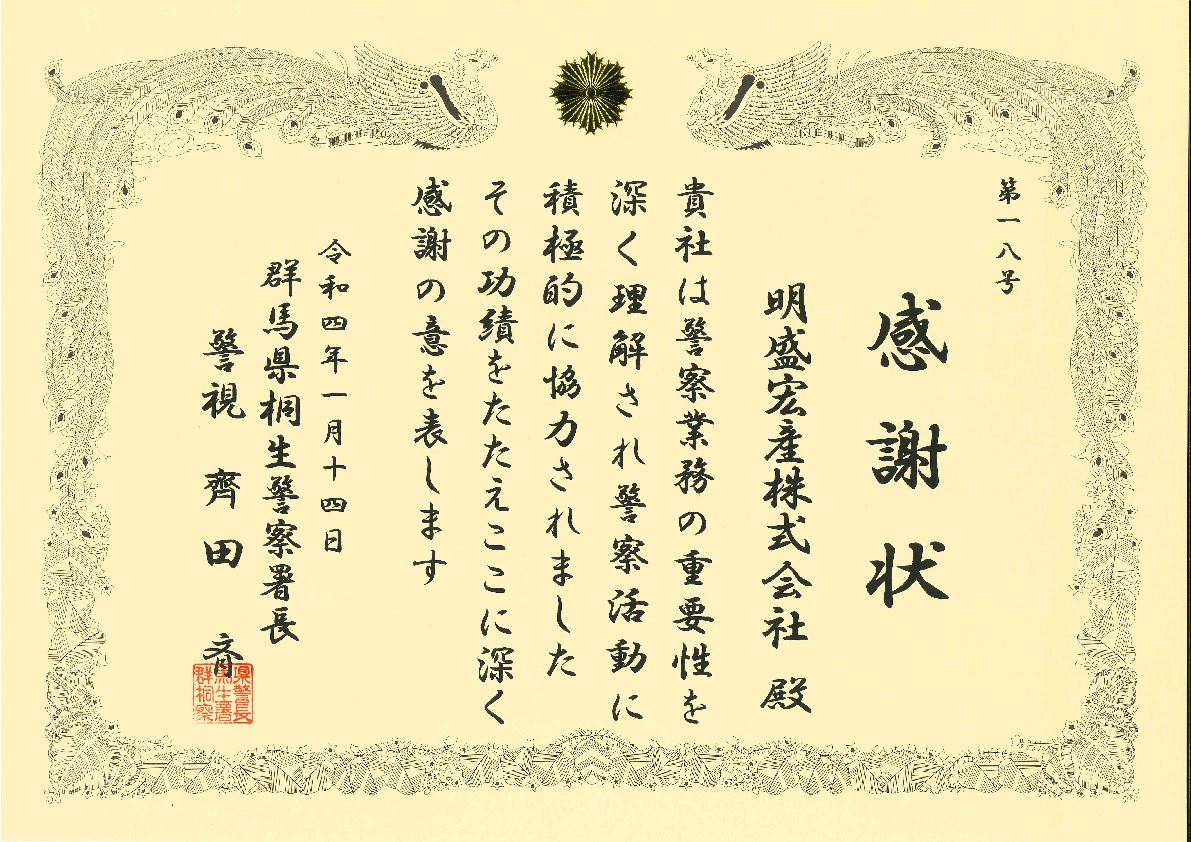 第一八号
感謝状
明盛宏産株式会社 殿
貴社は警察業務の重要性を
深く理解され警察活動に
積極的に協力されました
その功績をたたえここに深く
感謝の意を表します
令和四年一月十四日
群馬県桐生警察署長
警視 齊田 斉
県警長
馬生署
群桐察